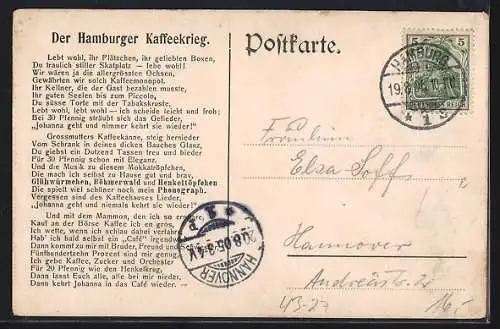 Der Hamburger Kaffeekrieg.
Lebt wohl, ihr Plätschen, ihr geliebten Boxen,
Du traulich stiller Skatplatz — lebe wohl!
Wir wären ja die allergrössten Ochsen,
Gewährten wir solch Kaffeemonopol.
Ihr Kellner, die der Gast bezahlen musste,
Ihr guten Seelen bis zum Piccolo,
Du süsse Torte mit der Tabakskruste,
Lebt wohl, lebt wohl — ich scheide leicht und froh;
Bei 30 Pfennig sträubt sich das Gefieder,
„Johanna geht und nimmer kehrt sie wieder!“
Grossmutters Kaffeekanne, steig hernieder
Vom Schrank in deines dicken Bauches Glanz,
Du giebst ein Dutzend Tassen treu und bieder
Für 30 Pfennig schon mit Eleganz.
Und die Musik zu diesem Mokkatröpfchen,
Die mach ich selbst zu Hause gut und brav,
Glühwürmchen, Böhmerwald und Henkeltöpfchen
Die spielt viel schöner noch mein Phonograph.
Vergessen sind des Kaffeehauses Lieder,
„Johanna geht und niemals kehrt sie wieder!“
Und mit dem Mammon, den ich so erspare,
Kauf an der Börse Kaffee ich en gros,
Ich wette, wenn ich schlau dabei verfahre
Hab' ich bald selbst ein „Café“ irgend
Dann kommt zu mir mit Freund und
Fünfhundertzehn Prozent sind mir genug
Ich gebe Kaffee, Zucker und Orchester
Für 20 Pfennig wie den Henkelkrug.
Dann lasst Euch alle, alle bei mir nieder,
Dann kehrt Johanna in das Café wieder. —
Postkarte.
5 5
DEUTSCHES REICH
HAMBURG
19.8.05
* 1
Fräulein
Elsa Soff
Hannover
HANNOVER
20.8.05. 3-4 V.
16,-